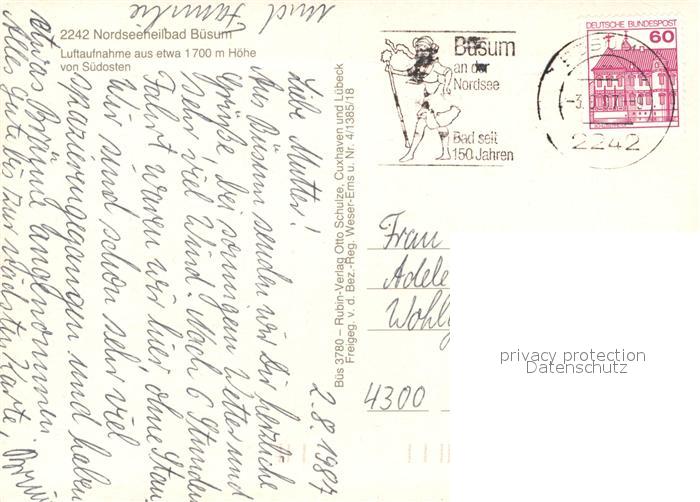 2242 Nordseeheilbad Büsum
Luftaufnahme aus etwa 1700 m Höhe
von Südosten
2.8.1987
Liebe Mutter!
Aus Büsum senden wir Dir herzliche
Grüße bei sonnigem Wetter und
sehr viel Wind. Nach 6 Stunden
Fahrt waren wir hier, ohne Stau.
Wir sind schon sehr viel
spazierengegangen und haben
etwas Bräune angenommen.
Alles Gute bis zur nächsten Karte,
und Familie
Büs 3780 – Rubin-Verlag Otto Schulze, Cuxhaven und Lübeck
Freigeg. v. d. Bez.-Reg. Weser-Ems u. Nr. 4/1385/18
Büsum
an der
Nordsee
Bad seit
150 Jahren
2242
DEUTSCHE BUNDESPOST
60
Frau
Adele
4300
privacy protection
Datenschutz